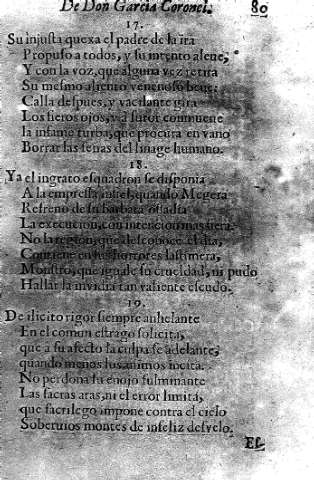 De Don Garcia Coronel. 80
17.
Su injusta quexa el padre de la ira
Propuso a todos, y su intento aleue,
Y con la voz, que alguna vez retira
Su mesmo aliento venenoso beue:
Calla despues, y vacilante gira
Los fieros ojos, y a furor conmueue
la infame turba, que procura en vano
Borrar las señas del linage humano.
18.
Ya el ingrato esquadron se disponia
A la empressa infiel, quando Megera
Refreno de su barbara osadia
La execucion, con intencion mas fiera:
No la region, que desconoce el dia,
Contiene en sus horrores lastimera,
Monstro, que iguale su crueldad, ni pudo
Hallar la invidia tan valiente escudo.
19.
De ilicito rigor siempre anhelante
En el comun estrago solicita,
que a su afecto la culpa se adelante,
quando menos los animos incita.
No perdona su enojo fulminante
Las sacras aras, ni el error limita,
que sacrilego impone contra el cielo
Soberuios montes de infeliz desvelo.